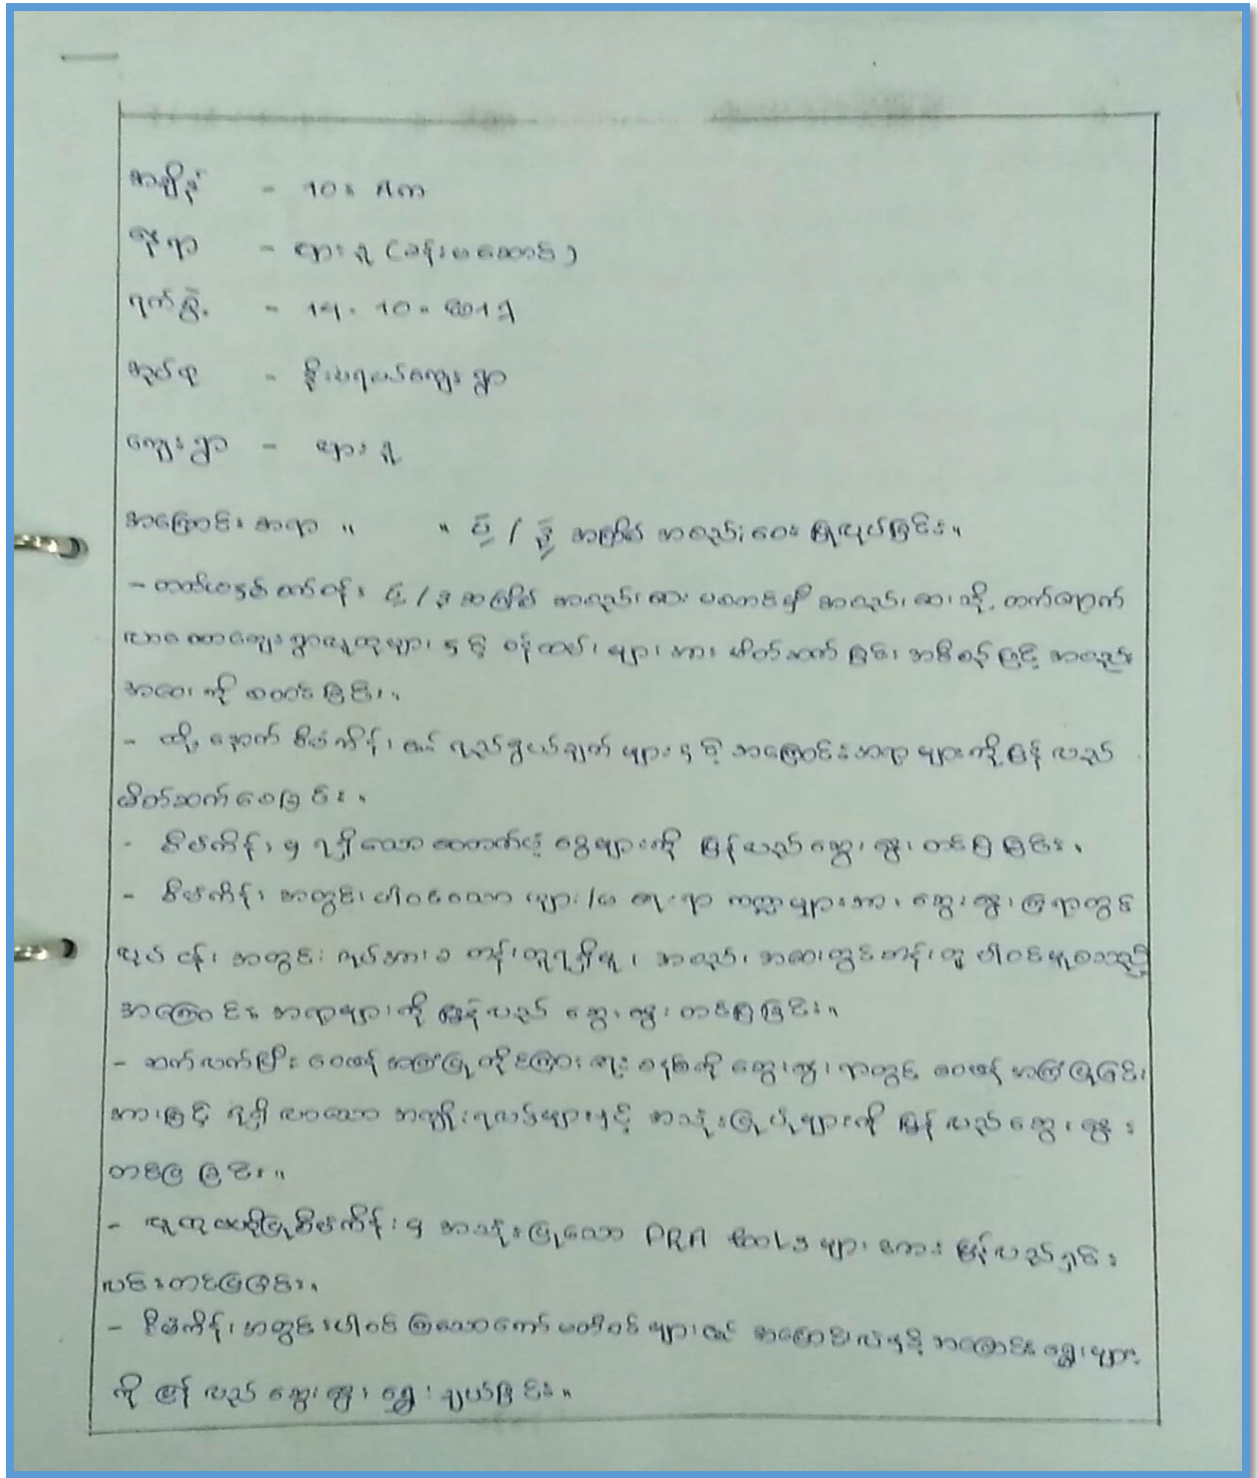 အချိန် - 10း
နေရာ - ဖျားရှူ (ခန်းမဆောင်)
ရက်စွဲ - 10
အုပ်စု - နိုးပဲရယ်ကျေးရွာ
ကျေးရွာ - ဖျားရှူ
အကြောင်းအရာ ။ ။ ပ / ဒု အကြိမ် အစည်းဝေး ပြုလုပ်ခြင်း။
- / အကြိမ် အစည်းဝေး မစတင်မှီ အစည်းဝေးသို့ တက်ရောက်
လာသောကျေးရွာလူထုများ နှင့် ဝန်ထမ်းများအား မိတ်ဆက်ခြင်း အစီစဉ်ဖြင့် အစည်း
အဝေးကို စတင်ခြင်း။
- ထို့နောက် စီမံကိန်း၏ ရည်ရွယ်ချက်များနှင့် အကြောင်းအရာများကို ပြန်လည်
မိတ်ဆက်စေခြင်း။
- စီမံကိန်းမှ ရရှိသော ထောက်ပံ့ငွေများကို ပြန်လည်ဆွေးနွေးတင်ပြခြင်း။
- စီမံကိန်းအတွင်းပါဝင်သော ကျား/မ ရေးရာ ကဏ္ဍများအား ဆွေးနွေးပြရာတွင်
လုပ်ငန်းအတွင်း လုပ်အားခ တန်းတူရရှိမှု၊ အစည်းအဝေးတွင်တန်းတူ ပါဝင်မှုစသည့်
အကြောင်းအရာများကို ပြန်လည် ဆွေးနွေးတင်ပြခြင်း။
- ဆက်လက်ပြီး ဝေဖန်အကြံပြုတိုင်ကြားရေးစနစ်ကို ဆွေးနွေးရာတွင် ဝေဖန်အကြံပြုခြင်း
အားဖြင့် ရရှိလာသော အကျိုးရလဒ်များနှင့် အသုံးပြုပုံများကို ပြန်လည်ဆွေးနွေး
တင်ပြခြင်း။
- လူထုဗဟိုပြုစီမံကိန်းမှ အသုံးပြုသော PRA tools များအား ပြန်လည်ရှင်း
လင်းတင်ပြခြင်း။
- စီမံကိန်းအတွင်းပါဝင်ကြသောကော်မတီဝင်များ၏ အပြောင်းလဲနှင့် အကြောင်းရွေးများ
ကို ပြန်လည်ဆွေးနွေးရွေးချယ်ခြင်း။